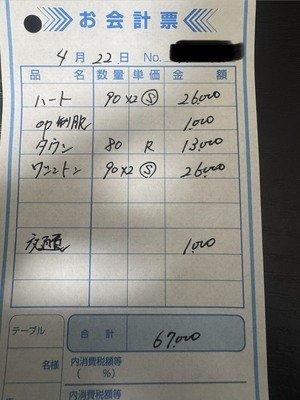 お会計票
4月22日 No.
品名 数量 単価 金額
ハート 90×2 Ⓢ 26,000
op制服 1,000
タウン 80 R 13,000
ワシントン 90×2 Ⓢ 26,000
1,000
合計 67,000
テーブル
名様
内消費税額等
( %)
内消費税額等